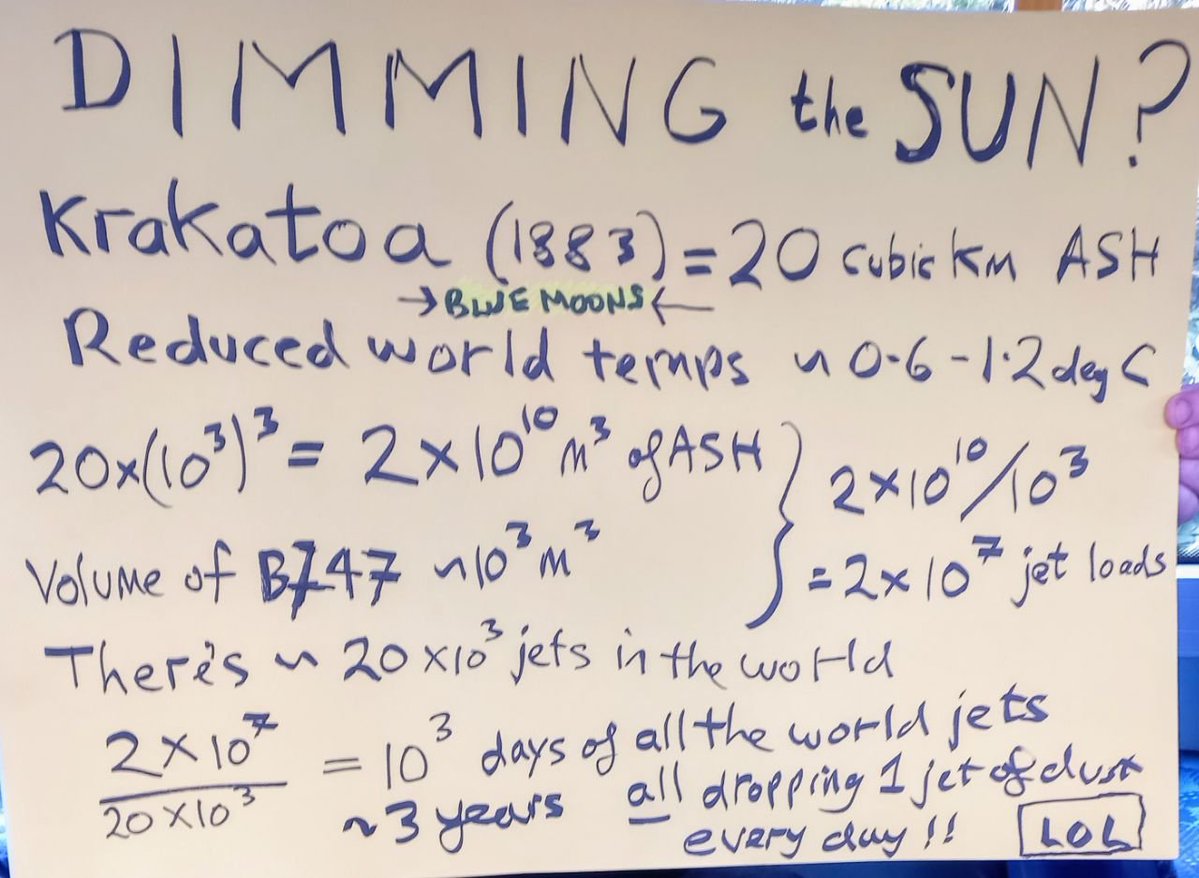 DIMMING the SUN?
Krakatoa (1883) = 20 cubic km ASH
→ BLUE MOONS ←
Reduced world temps ~ 0.6 - 1.2 deg C
20x(10³)³ = 2 x 10¹⁰ m³ of ASH } 2 x 10¹⁰/10³
Volume of B747 ~10³ m³ = 2 x 10⁷ jet loads
There's ~ 20 x 10³ jets in the world
2 x 10⁷ / 20 x 10³ = 10³ days of all the world jets
~ 3 years all dropping 1 jet of dust
every day !! LOL